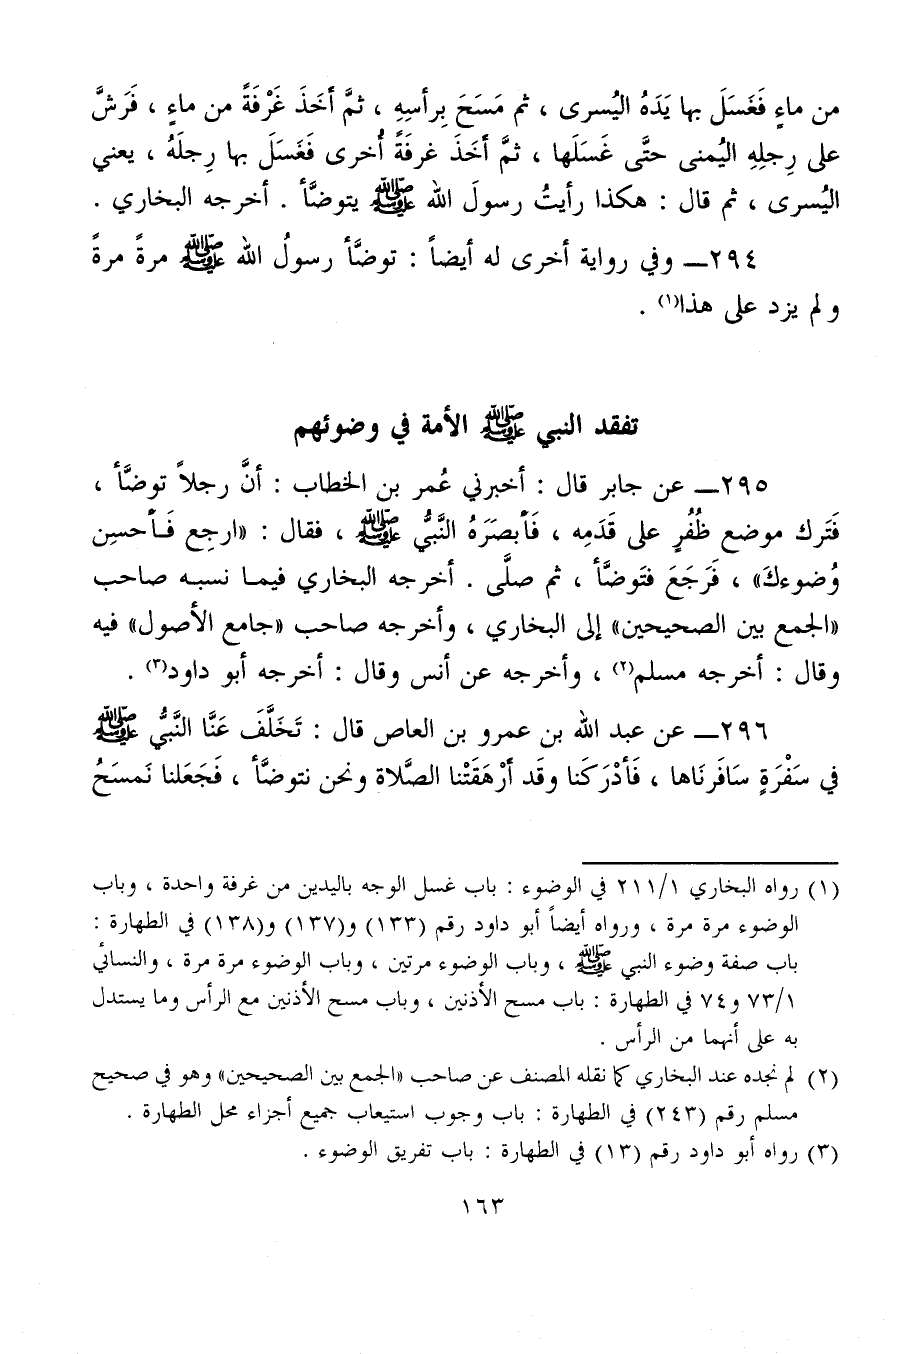 من ماءٍ فَغَسَلَ بها يَدَهُ اليُسرى ، ثم مَسَحَ بِرأسِهِ ، ثمَّ أخَذَ غَرْفَةً من ماءٍ ، فَرَشَّ
على رِجلِهِ اليُمنى حتَّى غَسَلَها ، ثمَّ أخَذَ غرفَةً أُخرى فَغَسَلَ بها رِجلَهُ ، يعني
اليُسرى ، ثم قال : هكذا رأيتُ رسولَ الله ﷺ يتوضَّأ . أخرجه البخاري .
٢٩٤ــ وفي رواية أخرى له أيضاً : توضَّأ رسولُ الله ﷺ مرةً مرةً
ولم يزد على هذا(١) .
تفقد النبي ﷺ الأمة في وضوئهم
٢٩٥ــ عن جابر قال : أخبرني عُمر بن الخطاب : أنَّ رجلاً توضَّأ ،
فَتَرك موضع ظُفُرٍ على قَدَمِه ، فَأبصَرَهُ النَّبيُّ ﷺ ، فقال : «ارجِع فَأحسِن
وُضوءكَ» ، فَرَجَعَ فتَوضَّأ ، ثم صلَّى . أخرجه البخاري فيما نسبه صاحب
«الجمع بين الصحيحين» إلى البخاري ، وأخرجه صاحب «جامع الأصول» فيه
وقال : أخرجه مسلم(٢) ، وأخرجه عن أنس وقال : أخرجه أبو داود(٣) .
٢٩٦ــ عن عبد الله بن عمرو بن العاص قال : تَخَلَّفَ عَنَّا النَّبيُّ ﷺ
في سَفْرَةٍ سافَرنَاها ، فَأدْرَكَنا وقَد أرْهَقَتْنا الصَّلاة ونحن نتوضَّأ ، فَجَعَلنا نَمسَحُ
(١) رواه البخاري ٢١١/١ في الوضوء : باب غسل الوجه باليدين من غرفة واحدة ، وباب
الوضوء مرة مرة ، ورواه أيضاً أبو داود رقم (١٣٣) و(١٣٧) و(١٣٨) في الطهارة :
باب صفة وضوء النبي ﷺ ، وباب الوضوء مرتين ، وباب الوضوء مرة مرة ، والنسائي
٧٣/١ و٧٤ في الطهارة : باب مسح الأذنين ، وباب مسح الأذنين مع الرأس وما يستدل
به على أنهما من الرأس .
(٢) لم نجده عند البخاري كما نقله المصنف عن صاحب «الجمع بين الصحيحين» وهو في صحيح
مسلم رقم (٢٤٣) في الطهارة : باب وجوب استيعاب جميع أجزاء محل الطهارة .
(٣) رواه أبو داود رقم (١٣) في الطهارة : باب تفريق الوضوء .
١٦٣